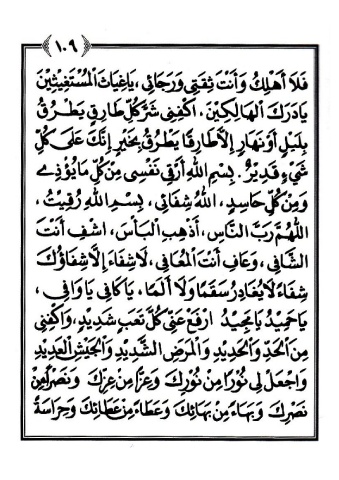 ١٠٩
فَلَا أَهْلِكُ وَأَنْتَ ثِقَتِي وَرَجَائِي، يَا غِيَاثَ الْمُسْتَغِيثِينَ
يَا دَرَكَ الْهَالِكِينَ، اكْفِنِي شَرَّ كُلِّ طَارِقٍ يَطْرُقُ
بِلَيْلٍ أَوْ نَهَارٍ إِلَّا طَارِقًا يَطْرُقُ بِخَيْرٍ إِنَّكَ عَلَى كُلِّ
شَيْءٍ قَدِيرٌ. بِسْمِ اللهِ أَرْقِي نَفْسِي مِنْ كُلِّ مَا يُؤْذِي
وَمِنْ كُلِّ حَاسِدٍ، اللهُ شِفَائِي، بِسْمِ اللهِ رُقِيتُ،
اللّٰهُمَّ رَبَّ النَّاسِ، أَذْهِبِ الْبَأْسَ، اشْفِ أَنْتَ
الشَّافِي، وَعَافِ أَنْتَ الْمُعَافِي، لَا شِفَاءَ إِلَّا شِفَاؤُكَ
شِفَاءً لَا يُغَادِرُ سَقَمًا وَلَا أَلَمًا، يَا كَافِي يَا وَافِي،
يَا حَمِيدُ يَا مَجِيدُ ارْفَعْ عَنِّي كُلَّ تَعَبٍ شَدِيدٍ، وَاكْفِنِي
مِنَ الْحَدِّ وَالْحَدِيدِ وَالْمَرَضِ الشَّدِيدِ وَالْجَيْشِ الْعَدِيدِ
وَاجْعَلْ لِي نُورًا مِنْ نُورِكَ وَعِزًّا مِنْ عِزِّكَ وَنَصْرًا مِنْ
نَصْرِكَ وَبَهَاءً مِنْ بَهَائِكَ وَعَطَاءً مِنْ عَطَائِكَ وَحِرَاسَةً